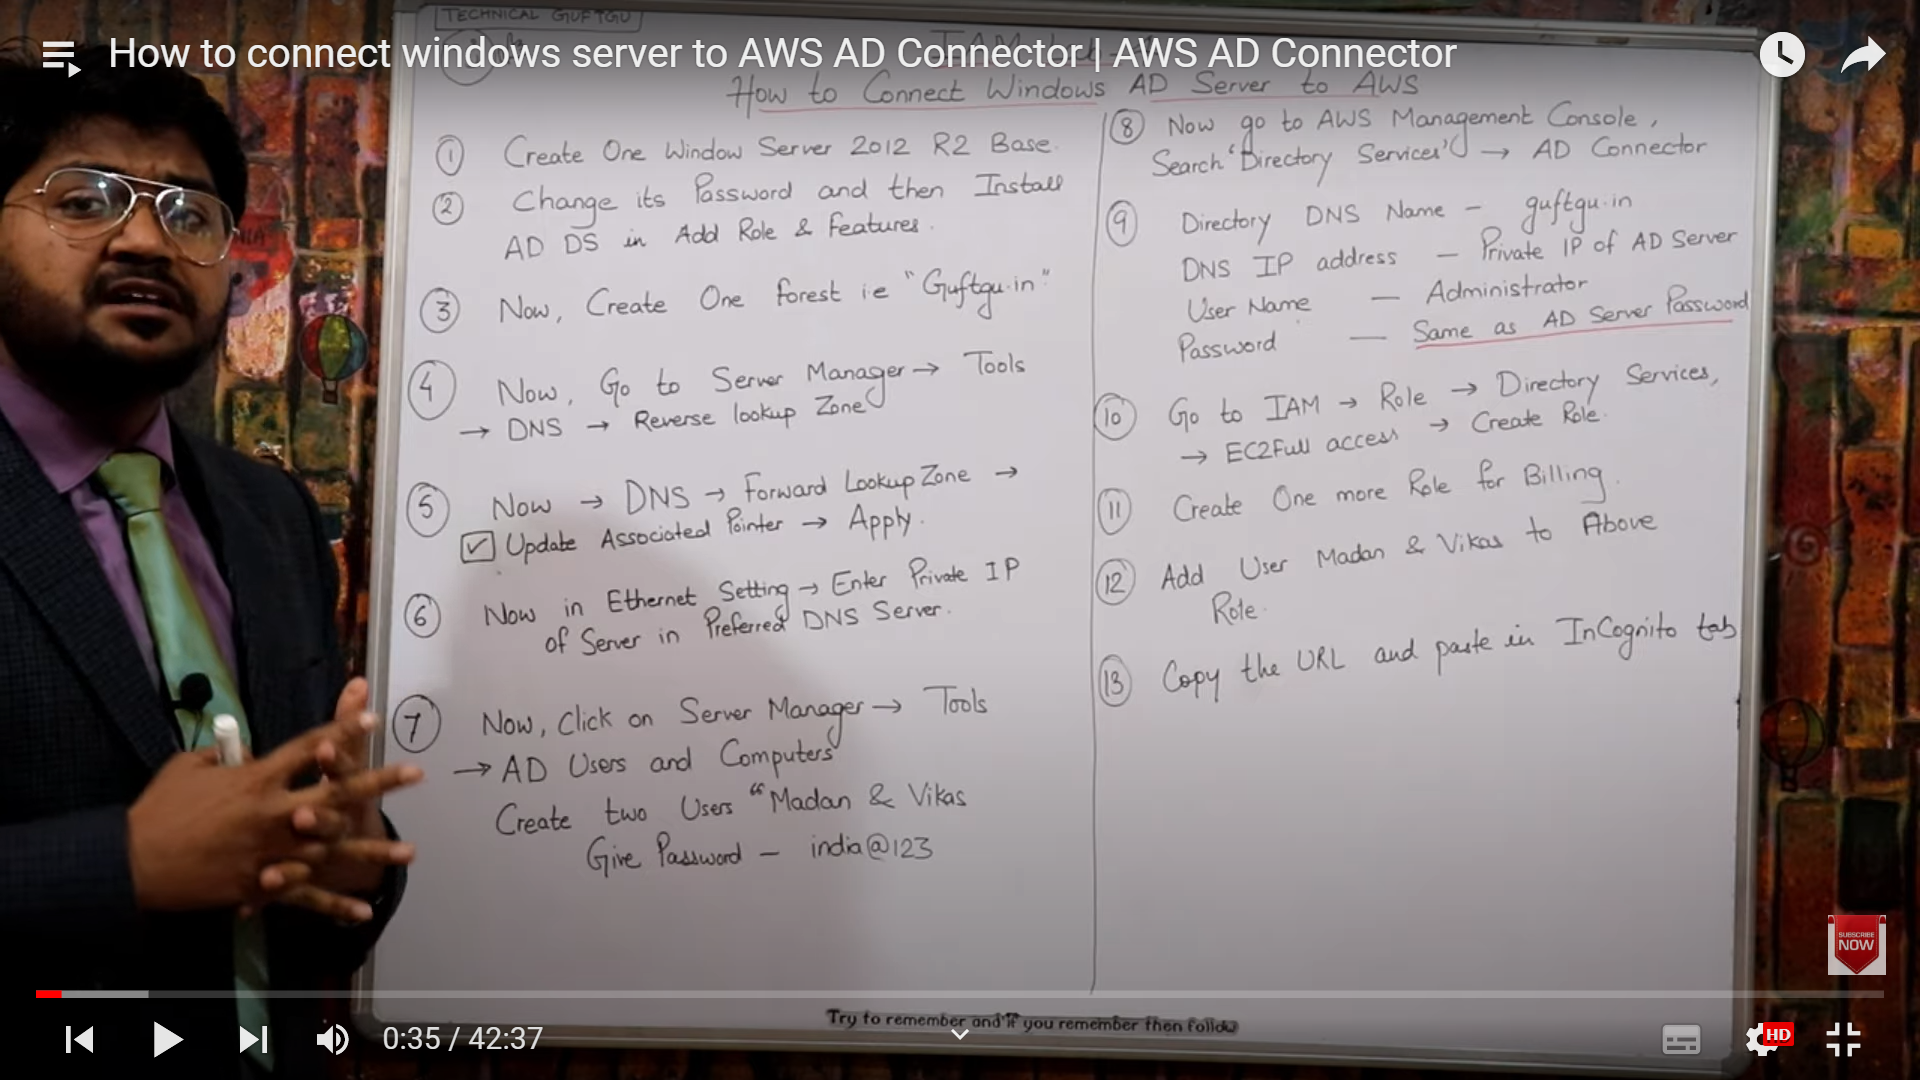 TECHNICAL GUFTGU
How to connect windows server to AWS AD Connector | AWS AD Connector
How to Connect Windows AD Server to AWS
① Create One Window Server 2012 R2 Base.
② Change its Password and then Install
AD DS in Add Role & Features.
③ Now, Create One Forest i.e "Guftgu.in"
④ Now, Go to Server Manager → Tools
→ DNS → Reverse lookup Zone
⑤ Now → DNS → Forward Lookup Zone →
☑ Update Associated Pointer → Apply.
⑥ Now in Ethernet Setting → Enter Private IP
of Server in Preferred DNS Server.
⑦ Now, Click on Server Manager → Tools
→ AD Users and Computers
Create two Users "Madan & Vikas
Give Password – india@123
⑧ Now go to AWS Management Console,
Search 'Directory Services' → AD Connector
⑨ Directory DNS Name – guftgu.in
DNS IP address – Private IP of AD Server
User Name – Administrator
Password – Same as AD Server Password
⑩ Go to IAM → Role → Directory Services,
→ EC2Full access → Create Role.
⑪ Create One more Role for Billing.
⑫ Add User Madan & Vikas to Above
Role.
⑬ Copy the URL and paste in InCognito tab
SUBSCRIBE
NOW
Try to remember and if you remember then follow
0:35 / 42:37
HD